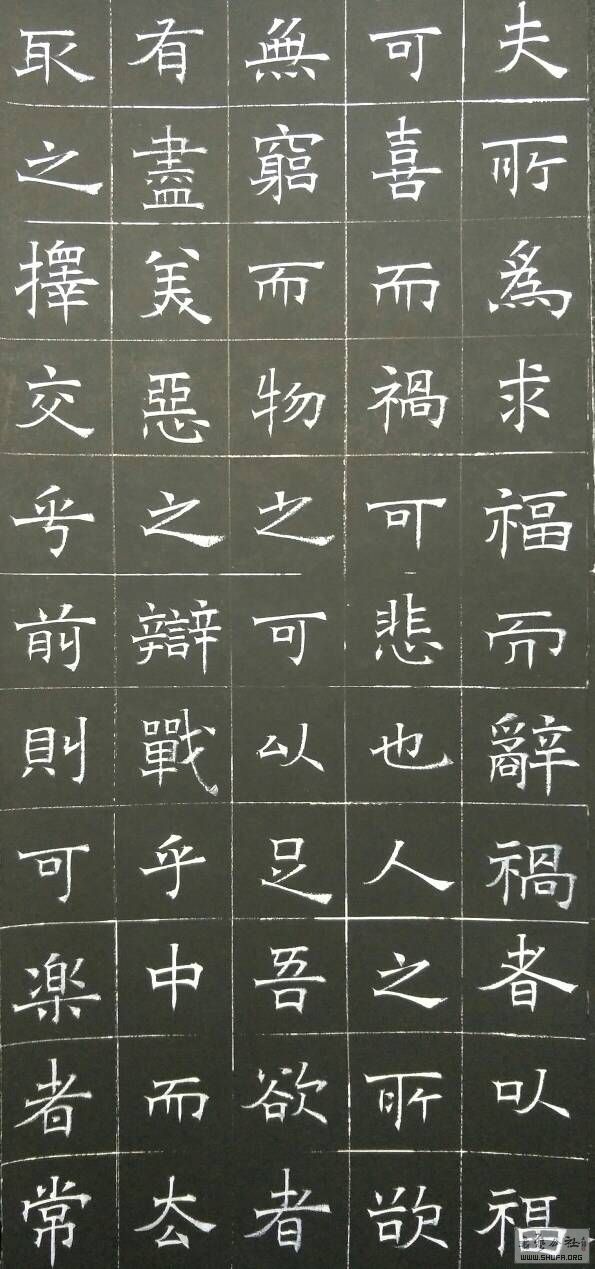 夫所爲求福而辭禍者以福
可喜而禍可悲也人之所欲
無窮而物之可以足吾欲者
有盡美惡之辯戰乎中而去
取之擇交乎前則可楽者常
WWW.SHUFA.ORG